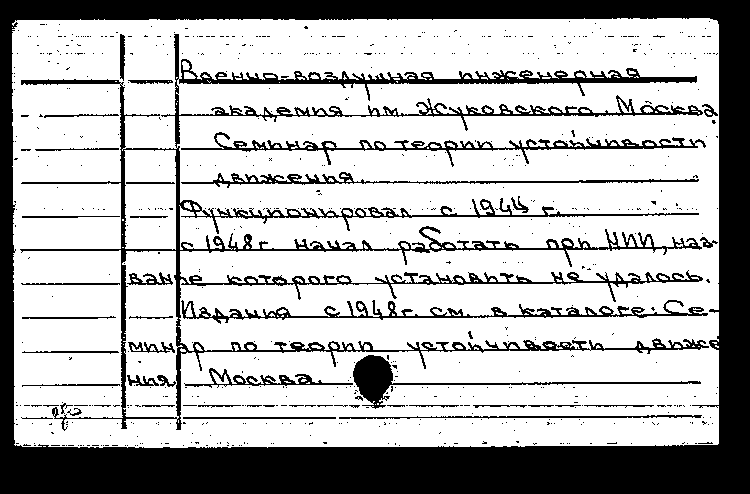 Военно-воздушная инженерная
академия им. Жуковского. Москва
Семинар по теории устойчивости
движения.
Функционировал с 1944 г.
с 1948 г. начал работать при НИИ, наз-
вание которого установить не удалось.
Издания с 1948 г. см. в каталоге: Се-
минар по теории устойчивости движе
ния. Москва.